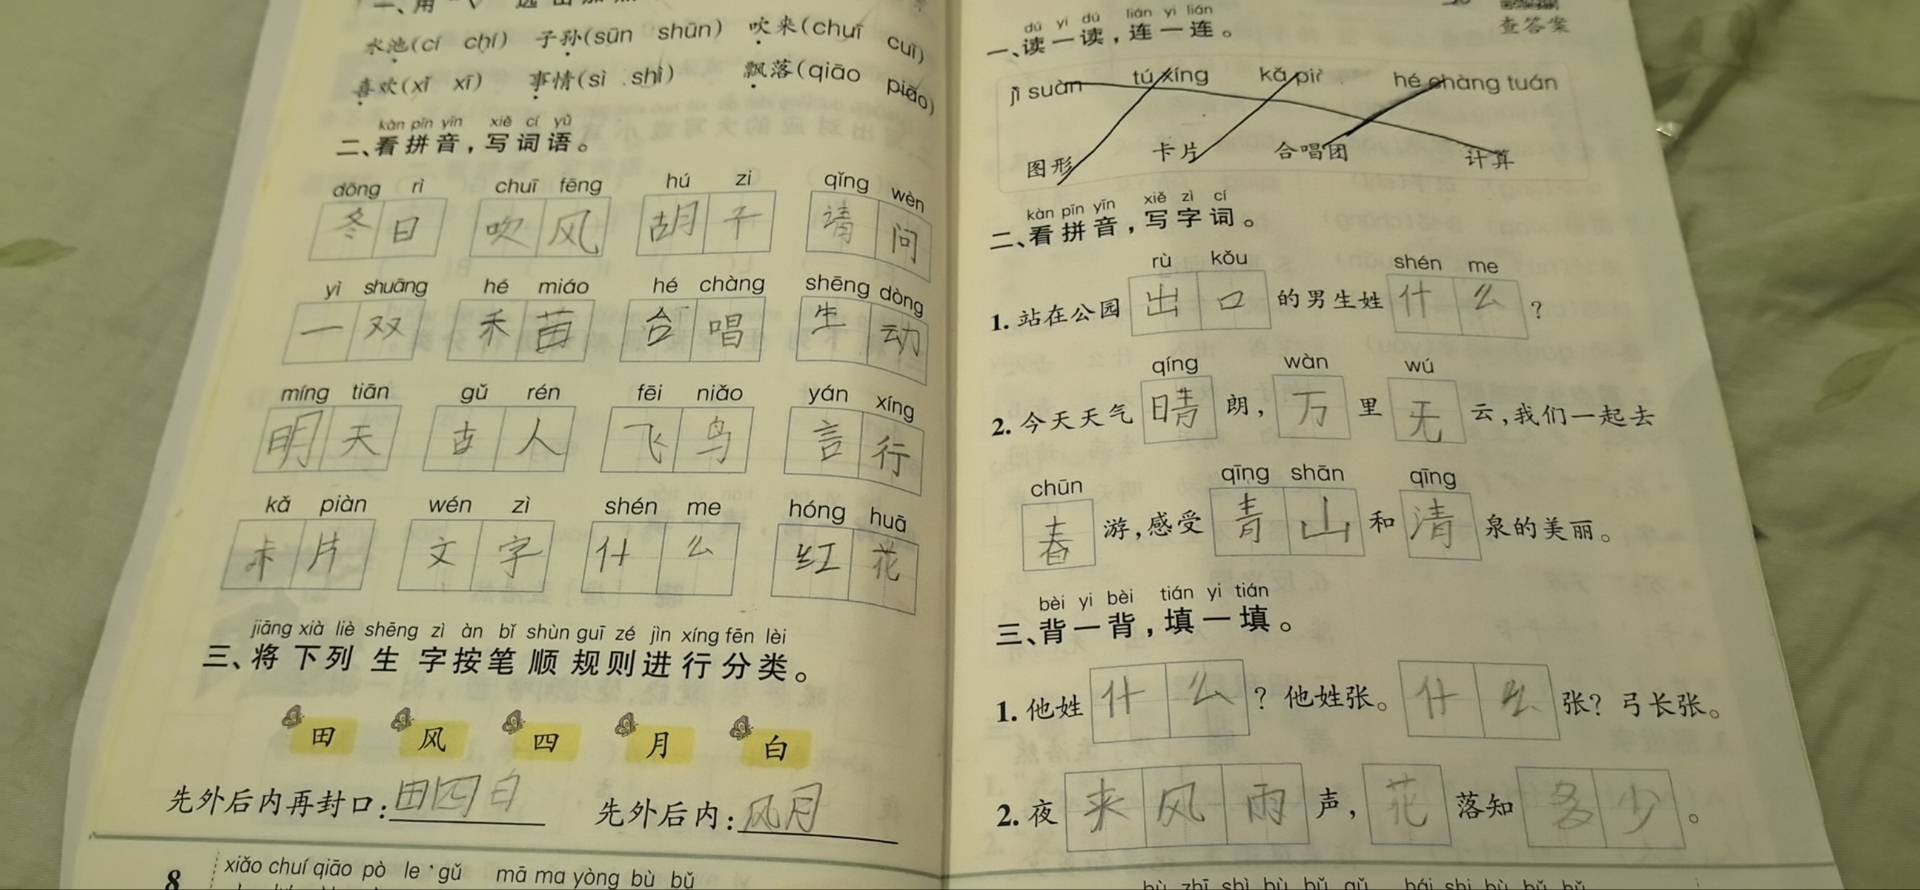 水池(cí chí) 子孙(sūn shūn) 吹来(chuī cuī)
喜欢(xǐ xī) 事情(sì shì) 飘落(qiāo piāo)
kàn pīn yīn xiě cí yǔ
二、看拼音，写词语。
dōng rì chuī fēng hú zi qǐng wèn
冬日 吹风 胡子 请问
yì shuāng hé miáo hé chàng shēng dòng
一双 禾苗 合唱 生动
míng tiān gǔ rén fēi niǎo yán xíng
明天 古人 飞鸟 言行
kǎ piàn wén zì shén me hóng huā
卡片 文字 什么 红花
jiāng xià liè shēng zì àn bǐ shùn guī zé jìn xíng fēn lèi
三、将下列生字按笔顺规则进行分类。
田 风 四 月 白
先外后内再封口：田四白 先外后内：风月
8
xiǎo chuí qiāo pò le gǔ mā ma yòng bù bǔ
查答案
dú yi dú lián yi lián
一、读一读，连一连。
jì suàn tú xíng kǎ piàn hé chàng tuán
图形 卡片 合唱团 计算
kàn pīn yīn xiě zì cí
二、看拼音，写字词。
rù kǒu shén me
1. 站在公园出口的男生姓什么？
qíng wàn wú
2. 今天天气晴朗，万里无云，我们一起去
chūn qīng shān qīng
春游，感受青山和清泉的美丽。
bèi yi bèi tián yi tián
三、背一背，填一填。
1. 他姓什么？他姓张。什么张？弓长张。
2. 夜来风雨声，花落知多少。